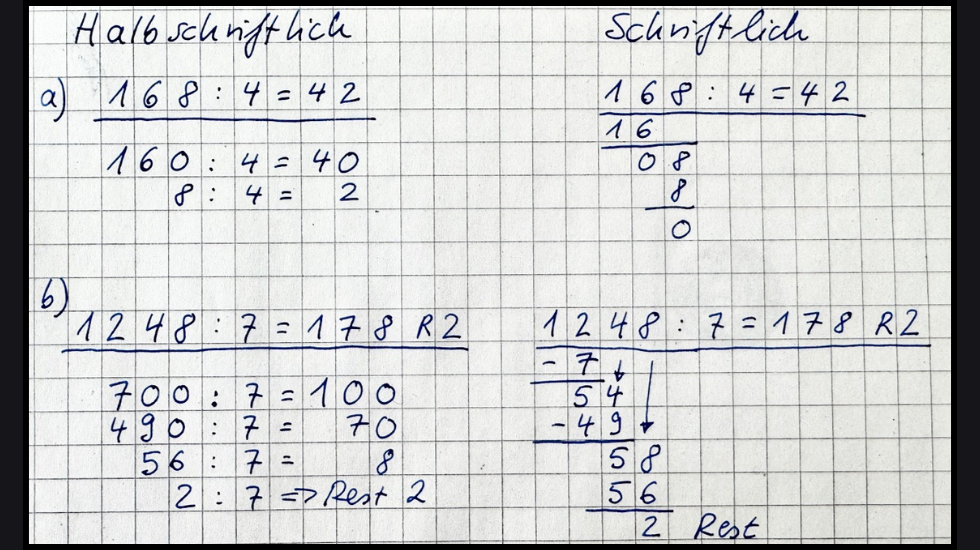 Halbschriftlich
a) 168 : 4 = 42
160 : 4 = 40
8 : 4 = 2
b)
1248 : 7 = 178 R2
700 : 7 = 100
490 : 7 = 70
56 : 7 = 8
2 : 7 => Rest 2
Schriftlich
168 : 4 = 42
16
08
8
0
1248 : 7 = 178 R2
- 7
54
- 49
58
56
2 Rest